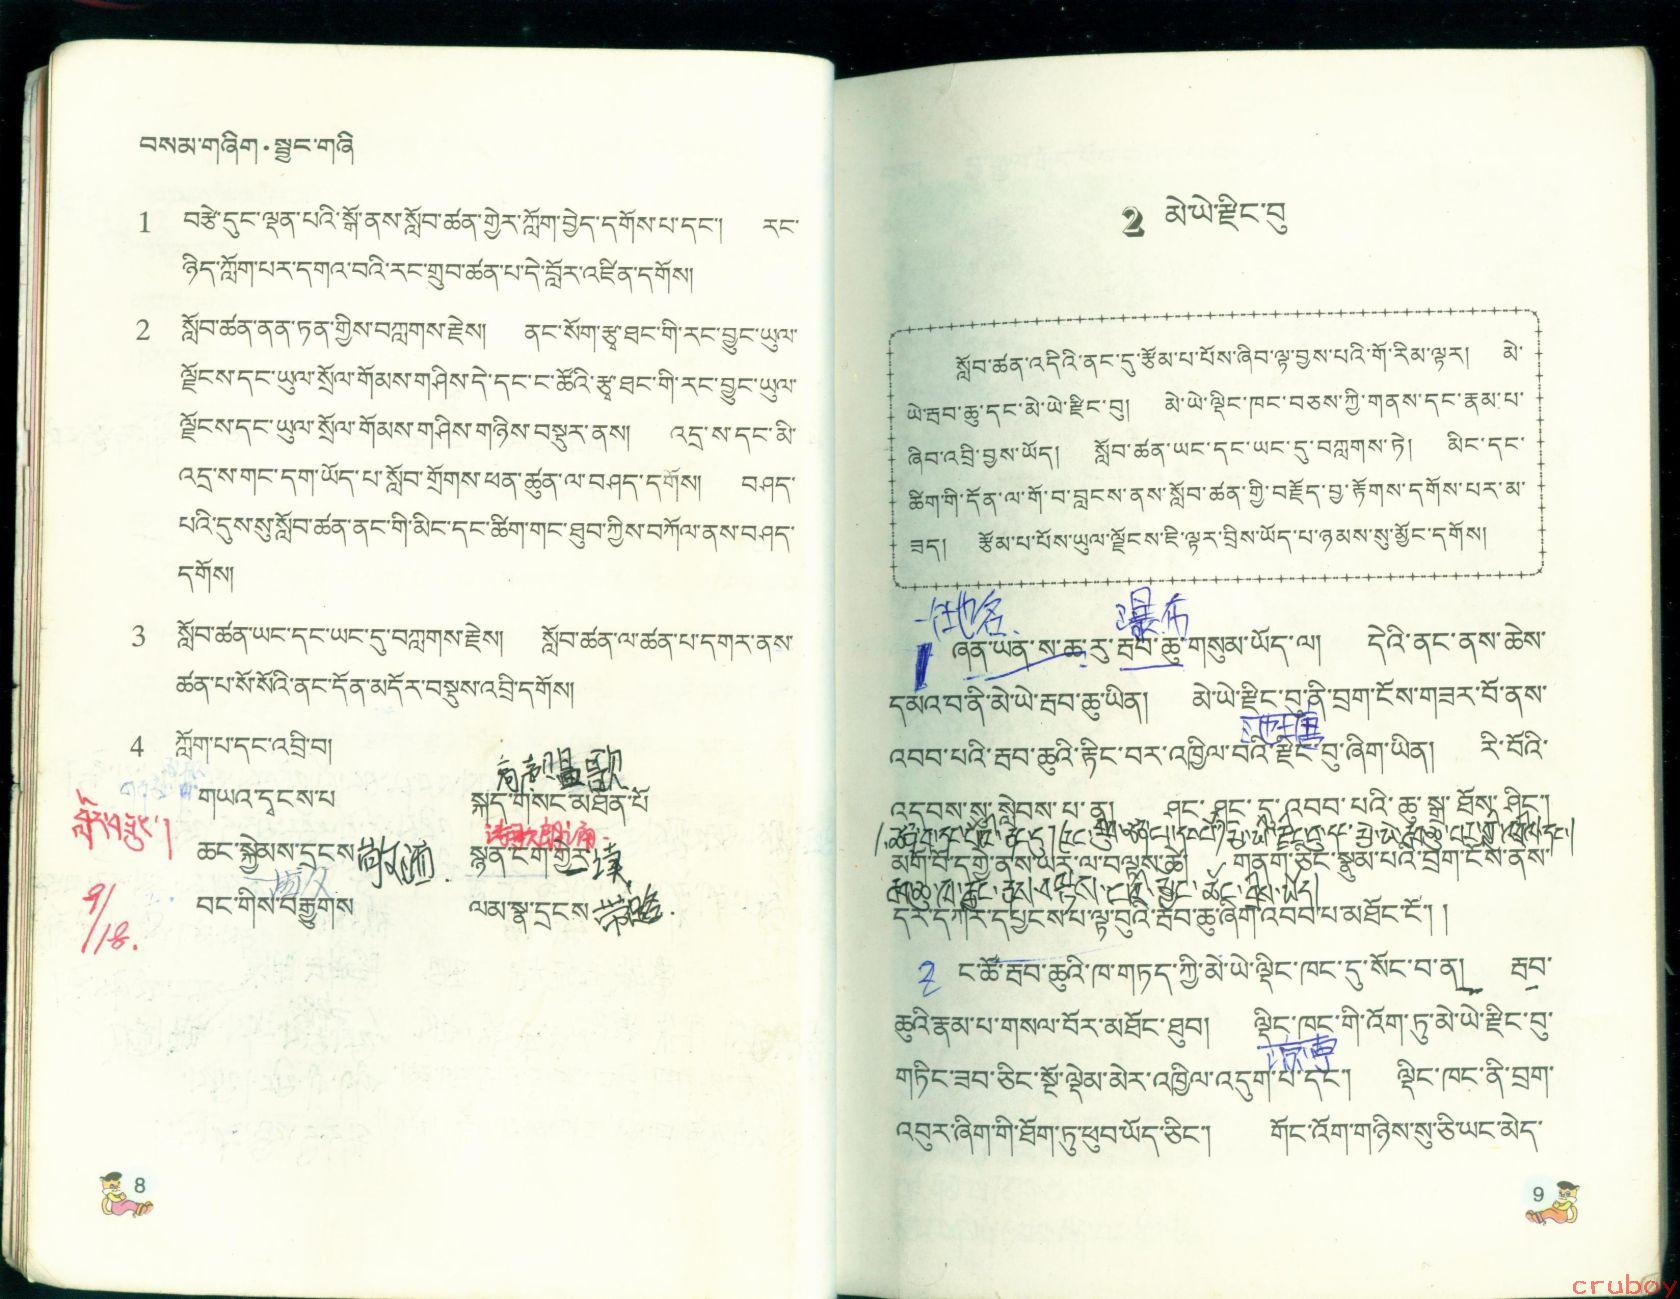 བསམ་གཞིག་སྦྱང་གཞི
1 བརྩེ་དུང་ལྡན་པའི་སྒོ་ནས་སློབ་ཚན་གྱེར་ཀློག་བྱེད་དགོས་པ་དང་། རང་
ཉིད་ཀློག་པར་དགའ་བའི་རང་གྲུབ་ཚན་པ་དེ་བློར་འཛིན་དགོས།
2 སློབ་ཚན་ནན་ཏན་གྱིས་བཀླགས་རྗེས། ནང་སོག་རྩྭ་ཐང་གི་རང་བྱུང་ཡུལ་
ལྗོངས་དང་ཡུལ་སྲོལ་གོམས་གཤིས་དེ་དང་ང་ཚོའི་རྩྭ་ཐང་གི་རང་བྱུང་ཡུལ་
ལྗོངས་དང་ཡུལ་སྲོལ་གོམས་གཤིས་གཉིས་བསྡུར་ནས། འདྲ་ས་དང་མི་
འདྲ་ས་གང་དག་ཡོད་པ་སློབ་གྲོགས་ཕན་ཚུན་ལ་བཤད་དགོས། བཤད་
པའི་དུས་སུ་སློབ་ཚན་ནང་གི་མིང་དང་ཚིག་གང་ཐུབ་ཀྱིས་བཀོལ་ནས་བཤད་
དགོས།
3 སློབ་ཚན་ཡང་དང་ཡང་དུ་བཀླགས་རྗེས། སློབ་ཚན་ལ་ཚན་པ་དགར་ནས་
ཚན་པ་སོ་སོའི་ནང་དོན་མདོར་བསྡུས་འབྲི་དགོས།
4 ཀློག་པ་དང་འབྲི་བ།
高声唱歌
གཡའ་དྭངས་པ སྐད་གསང་མཐོན་པོ
诗歌朗诵
ཆང་སྐྱེམས་དྲངས 敬酒 སྙན་ངག་གྱེར
བང་གིས་བརྒྱུགས ལམ་སྣ་དྲངས 带路
9/18
8
2 མེ་ཡེ་རྫིང་བུ
སློབ་ཚན་འདིའི་ནང་དུ་རྩོམ་པ་པོས་ཞིབ་ལྟ་བྱས་པའི་གོ་རིམ་ལྟར། མེ་
ཡེ་རྦབ་ཆུ་དང་མེ་ཡེ་རྫིང་བུ། མེ་ཡེ་ལྡིང་ཁང་བཅས་ཀྱི་གནས་དང་རྣམ་པ་
ཞིབ་འབྲི་བྱས་ཡོད། སློབ་ཚན་ཡང་དང་ཡང་དུ་བཀླགས་ཏེ། མིང་དང་
ཚིག་གི་དོན་ལ་གོ་བ་བླངས་ནས་སློབ་ཚན་གྱི་བརྗོད་བྱ་རྟོགས་དགོས་པར་མ་
ཟད། རྩོམ་པ་པོས་ཡུལ་ལྗོངས་ཇི་ལྟར་བྲིས་ཡོད་པ་ཉམས་སུ་མྱོང་དགོས།
地名 瀑布
1 ཞན་ཡན་ས་ཆ་རུ་རྦབ་ཆུ་གསུམ་ཡོད་ལ། དེའི་ནང་ནས་ཆེས་
དམའ་བ་ནི་མེ་ཡེ་རྦབ་ཆུ་ཡིན། མེ་ཡེ་རྫིང་བུ་ནི་བྲག་ངོས་གཟར་པོ་ནས་
འབབ་པའི་རྦབ་ཆུའི་རྟིང་བར་འཁྱིལ་བའི་རྫིང་བུ་ཞིག་ཡིན། རི་བོའི་
འདབས་སུ་སླེབས་པ་ན། ཤང་ཤང་དུ་འབབ་པའི་ཆུ་སྒྲ་ཐོས་ཤིང་།
མགོ་བོ་དགྱེ་ནས་ཡར་ལ་བལྟས་ཚེ། གནག་ཅིང་སྣུམ་པའི་བྲག་ངོས་ནས་
དར་དཀར་དཔྱངས་པ་ལྟ་བུའི་རྦབ་ཆུ་ཞིག་འབབ་པ་མཐོང་ངོ་།།
2 ང་ཚོ་རྦབ་ཆུའི་ཁ་གཏད་ཀྱི་མེ་ཡེ་ལྡིང་ཁང་དུ་སོང་བ་ན། རྦབ་
ཆུའི་རྣམ་པ་གསལ་བོར་མཐོང་ཐུབ། ལྡིང་ཁང་གི་འོག་ཏུ་མེ་ཡེ་རྫིང་བུ་
གཏིང་ཟབ་ཅིང་སྔོ་ལྡེམ་མེར་འཁྱིལ་འདུག་པ་དང་། ལྡིང་ཁང་ནི་བྲག་
འབུར་ཞིག་གི་ཐོག་ཏུ་ཕུབ་ཡོད་ཅིང་། གོང་འོག་གཉིས་སུ་ཅི་ཡང་མེད་
9
cruboy